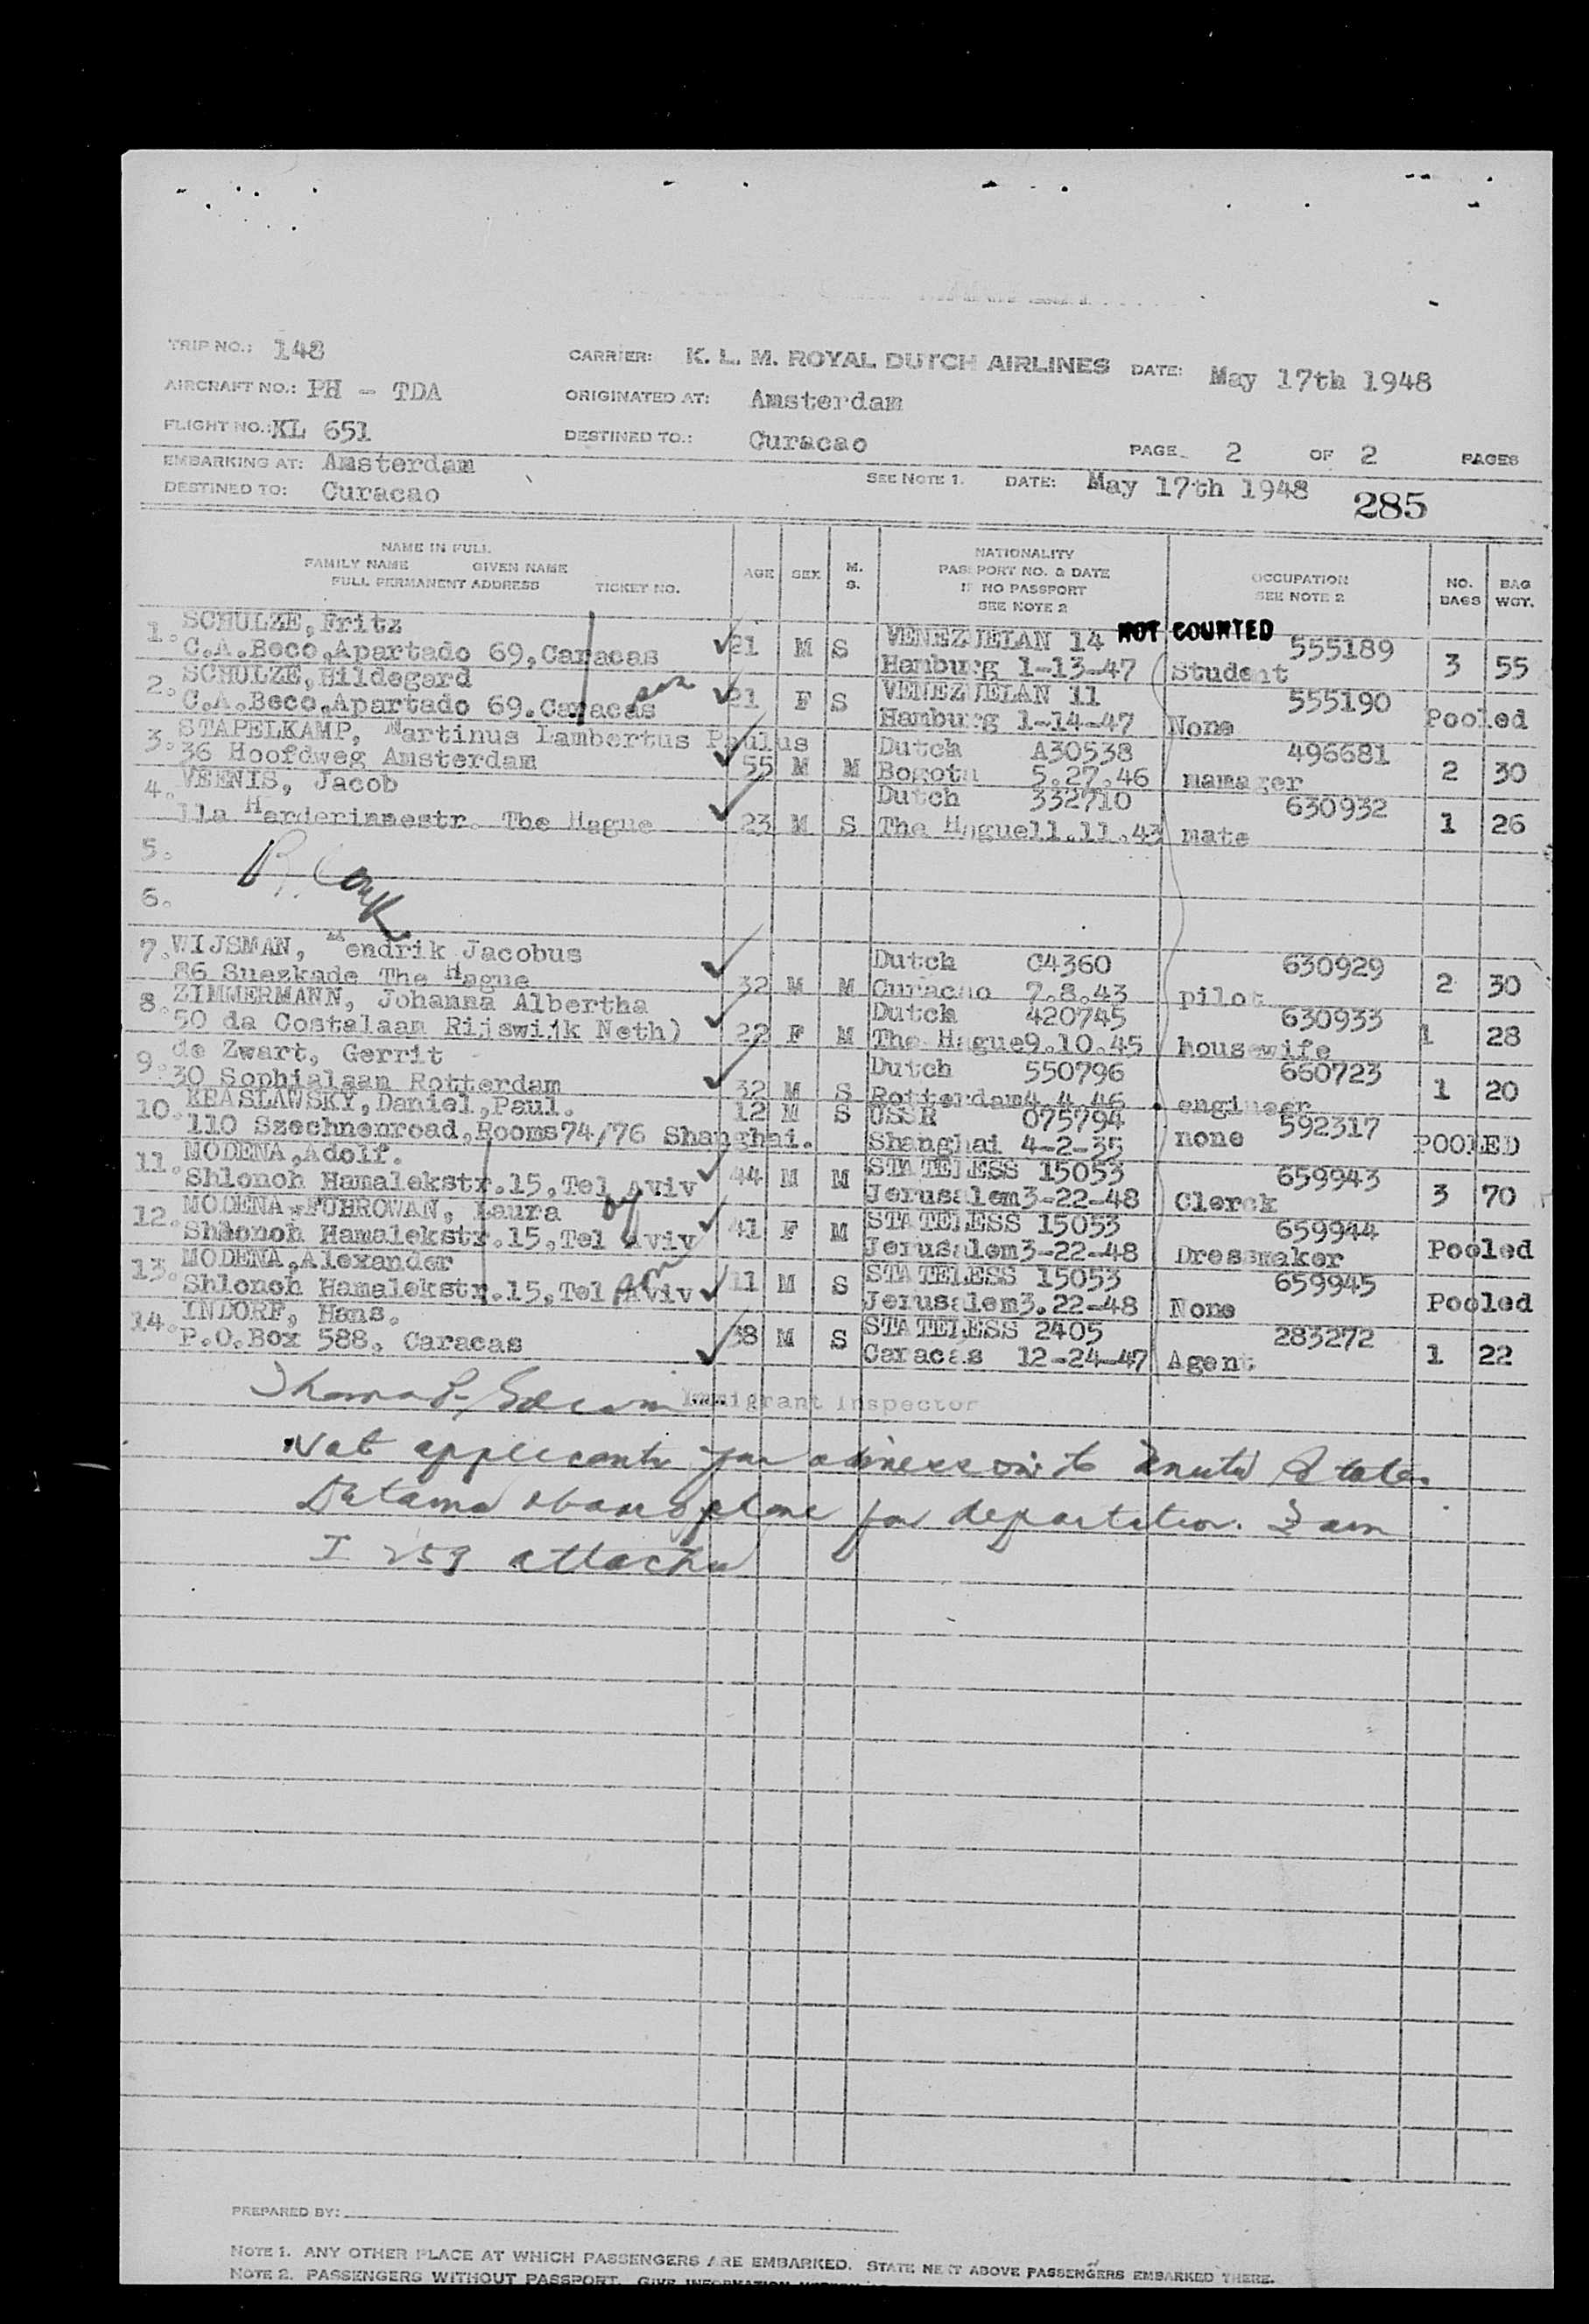 TRIP NO.: 148 CARRIER: K. L. M. ROYAL DUTCH AIRLINES DATE: May 17th 1948
AIRCRAFT NO.: PH - TDA ORIGINATED AT: Amsterdam
FLIGHT NO.: KL 651 DESTINED TO.: Curacao PAGE 2 OF 2 PAGES
EMBARKING AT: Amsterdam
DESTINED TO: Curacao SEE NOTE 1. DATE: May 17th 1948 285
NAME IN FULL
FAMILY NAME GIVEN NAME
FULL PERMANENT ADDRESS TICKET NO.
AGE SEX M. S.
NATIONALITY
PASSPORT NO. & DATE
IF NO PASSPORT
SEE NOTE 2
OCCUPATION
SEE NOTE 2
NO. BAGS
BAG WGT.
NOT COUNTED
1. SCHULZE, Fritz VENEZUELAN 14 555189
C.A.Beco,Apartado 69,Caracas 21 M S Hamburg 1-13-47 Student 3 55
2. SCHULZE,Hildegard VENEZUELAN 11 555190
C.A.Beco,Apartado 69.Caracas 21 F S Hamburg 1-14-47 None Pooled
3. STAPELKAMP, Martinus Lambertus Paulus Dutch A30538 496681
36 Hoofdweg Amsterdam 55 M M Bogota 5.27.46 manager 2 30
4. VEENIS, Jacob Dutch 332710 630932
11a Harderinnestr. The Hague 23 M S The Hague11.11.43 mate 1 26
5.
6.
7. WIJSMAN, Hendrik Jacobus Dutch C4360 630929
86 Suezkade The Hague 32 M M Curacao 7.8.43 pilot 2 30
8. ZIMMERMANN, Johanna Albertha Dutch 420745 630933
50 da Costalaan Rijswijk Neth) 22 F M The Hague9.10.45 housewife 1 28
9. de Zwart, Gerrit Dutch 550796 660723
30 Sophialaan Rotterdam 32 M S Rotterdam4.4.46 engineer 1 20
10. KRASLAWSKY,Daniel,Paul. 12 M S USSR 075794 592317
110 Szechnenroad,Rooms74/76 Shanghai. Shanghai 4-2-35 none POOLED
11. MODENA,Adolf. STATELESS 15053 659943
Shlonoh Hamalekstr.15,Tel Aviv 44 M M Jerusalem3-22-48 Clerck 3 70
12. MODENA-FUHROWAN, Laura STATELESS 15053 659944
Shlonoh Hamalekstr.15,Tel Aviv 41 F M Jerusalem3-22-48 Dressmaker Pooled
13. MODENA,Alexander STATELESS 15053 659945
Shlonoh Hamalekstr.15,Tel Aviv 11 M S Jerusalem3.22-48 None Pooled
14. INDORF, Hans. STATELESS 2405 283272
P.O.Box 588, Caracas 38 M S Caracas 12-24-47 Agent 1 22
Immigrant Inspector
Not applicants for admission to United States
aboard plane for
I 259 attached
PREPARED BY:
NOTE 1. ANY OTHER PLACE AT WHICH PASSENGERS ARE EMBARKED. STATE NEXT ABOVE PASSENGERS EMBARKED THERE.
NOTE 2. PASSENGERS WITHOUT PASSPORT. GIVE INFORMATION